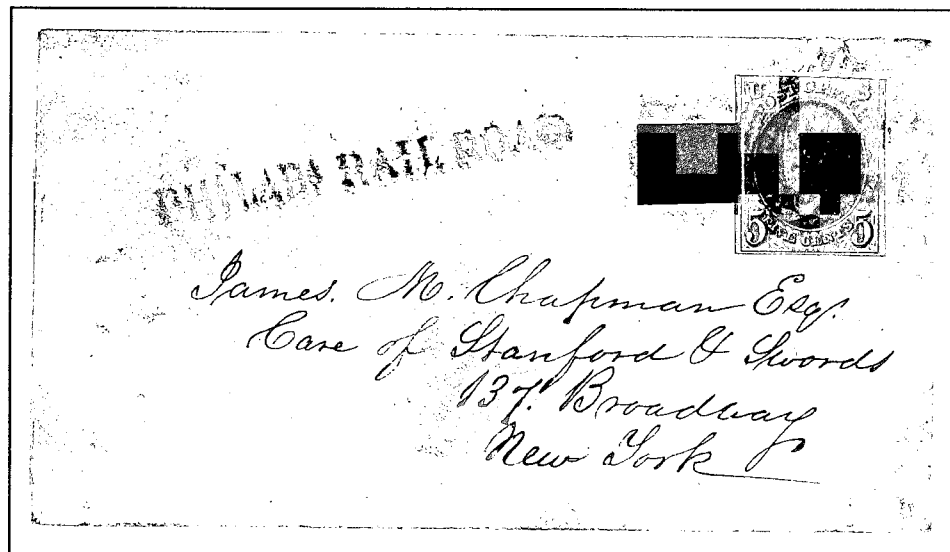 PHILADA RAIL ROAD
POST OFFICE
5 FIVE CENTS 5
James. M. Chapman Esq.
Care of Stanford & Swords
137. Broadway
New York